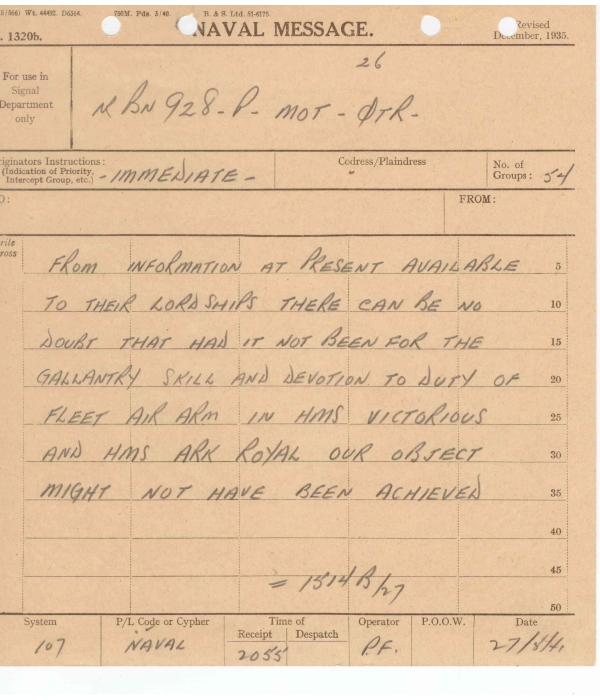 5/866) Wt. 44492. D6364. 750M. Pds. 3/40. B. & S. Ltd. 51-6175.
NAVAL MESSAGE.
Revised
December, 1935.
. 1320b.
26
For use in
Signal
Department
only
BN 928 - P - MOT - ØTR -
riginators Instructions:
(Indication of Priority,
Intercept Group, etc.)
- IMMEDIATE -
Codress/Plaindress
No. of
Groups: 54
O:
FROM:
rite
ross
FROM INFORMATION AT PRESENT AVAILABLE 5
TO THEIR LORDSHIPS THERE CAN BE NO 10
DOUBT THAT HAD IT NOT BEEN FOR THE 15
GALLANTRY SKILL AND DEVOTION TO DUTY OF 20
FLEET AIR ARM IN HMS VICTORIOUS 25
AND HMS ARK ROYAL OUR OBJECT 30
MIGHT NOT HAVE BEEN ACHIEVED 35
40
45
= 1514B/27
50
System P/L Code or Cypher Time of Operator P.O.O.W. Date
Receipt Despatch
107 NAVAL 2055 P.F. 27/5/41